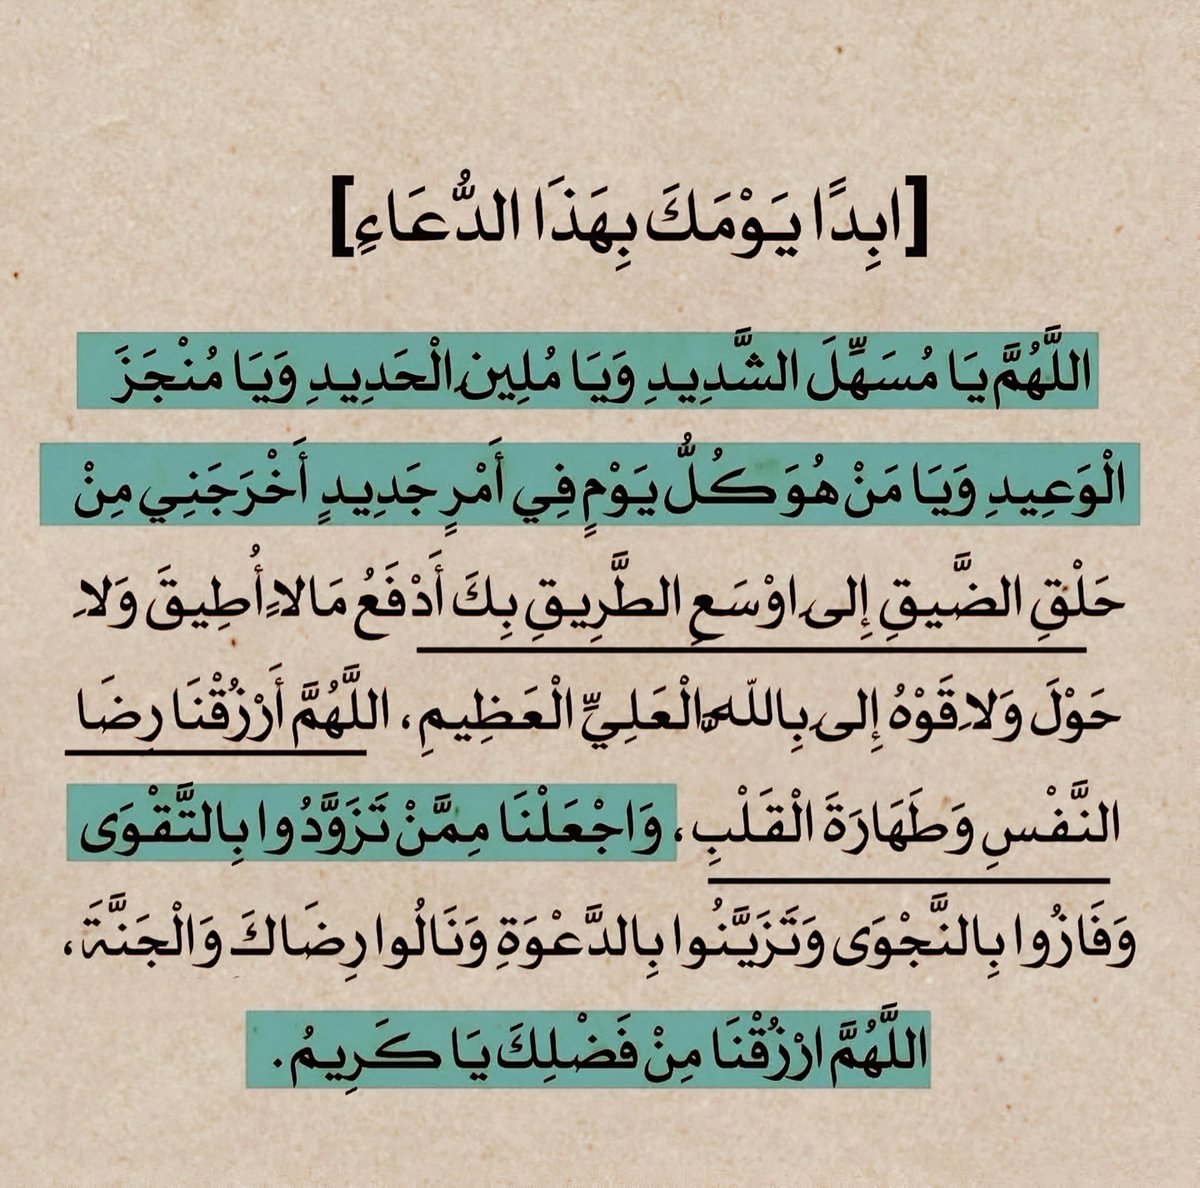 [ابِدًا يَوْمَكَ بِهَذَا الدُّعَاءِ]
اللَّهُمَّ يَا مُسَهِّلَ الشَّدِيدِ وَيَا مُلِينِ الْحَدِيدِ وَيَا مُنْجَزَ
الْوَعِيدِ وَيَا مَنْ هُوَ كُلُّ يَوْمٍ فِي أَمْرٍ جَدِيدٍ أَخْرَجَنِي مِنْ
حَلْقِ الضَّيقِ إِلىِ اوْسَعِ الطَّرِيقِ بِكَ أَدْفَعُ مَالاٍ أُطِيقَ وَلاِ
حَوْلَ وَلاِ قَوْهُ إِلىِ بِاللّهِ الْعَلِيِّ الْعَظِيمِ، اللَّهُمَّ أَرْزُقْنَا رِضَا
النَّفْسِ وَطَهَارَةَ الْقَلْبِ، وَاجْعَلْنَا مِمَّنْ تَزَوَّدُوا بِالتَّقْوَى
وَفَازُوا بِالنَّجْوَى وَتَزَيَّنُوا بِالدَّعْوَةِ وَنَالُوا رِضَاكَ وَالْجَنَّةَ،
اللَّهُمَّ ارْزُقْنَا مِنْ فَضْلِكَ يَا كَرِيمُ.